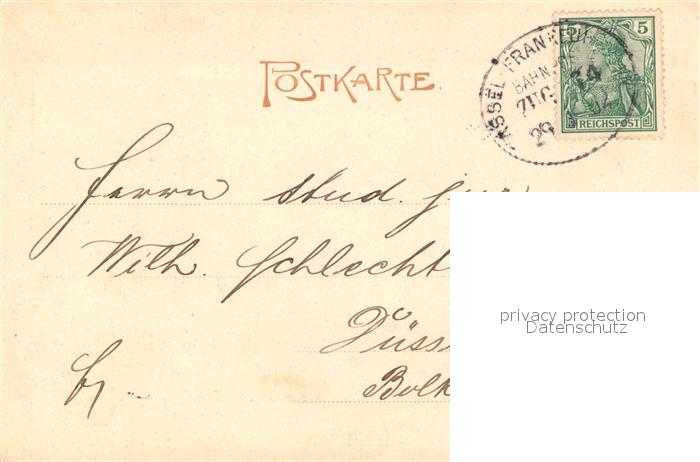 POSTKARTE.
5 5
REICHSPOST
KASSEL-FRANKFU
BAHNPOST
ZUG 74
29
Herrn stud. jur.
Wilh. Schlecht
Düss
Bolk
privacy protection
Datenschutz